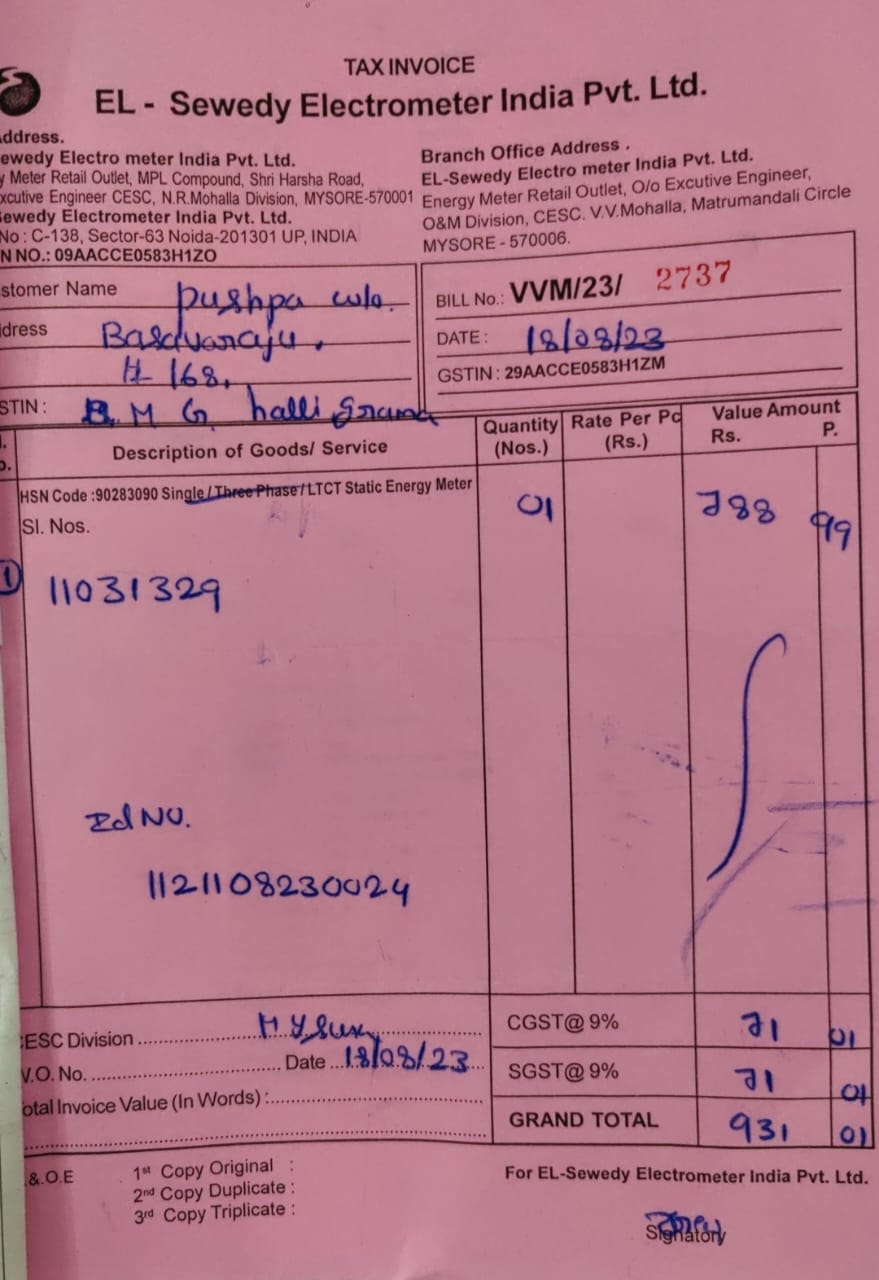 TAX INVOICE
EL - Sewedy Electrometer India Pvt. Ltd.
ddress.
ewedy Electro meter India Pvt. Ltd.
y Meter Retail Outlet, MPL Compound, Shri Harsha Road,
xcutive Engineer CESC, N.R.Mohalla Division, MYSORE-570001
Sewedy Electrometer India Pvt. Ltd.
No : C-138, Sector-63 Noida-201301 UP, INDIA
N NO.: 09AACCE0583H1ZO
Branch Office Address .
EL-Sewedy Electro meter India Pvt. Ltd.
Energy Meter Retail Outlet, O/o Excutive Engineer,
O&M Division, CESC. V.V.Mohalla, Matrumandali Circle
MYSORE - 570006.
stomer Name pushpa w/o.
dress Basavaraju,
H 168,
STIN : B. M G. halli grama
BILL No.: VVM/23/ 2737
DATE : 18/08/23
GSTIN : 29AACCE0583H1ZM
Description of Goods/ Service Quantity (Nos.) Rate Per Pc (Rs.) Value Amount Rs. P.
HSN Code :90283090 Single / Three Phase / LTCT Static Energy Meter 01 788 99
Sl. Nos.
1 11031329
Id No.
1121108230024
CESC Division .......... Mysure
V.O. No. .......... Date ... 18/08/23
otal Invoice Value (In Words) :..........
CGST@ 9% 71 01
SGST@ 9% 71 01
GRAND TOTAL 931 01
.&.O.E
1st Copy Original :
2nd Copy Duplicate :
3rd Copy Triplicate :
For EL-Sewedy Electrometer India Pvt. Ltd.
Signatory